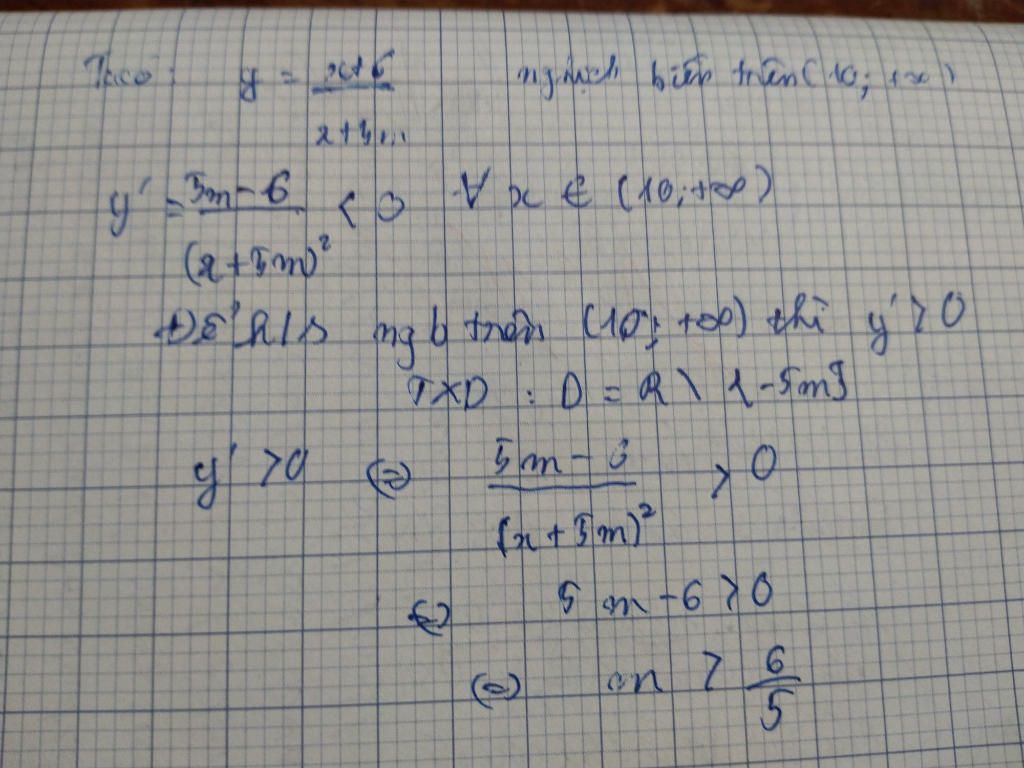 y = x+6 / x+5m nghịch biến trên (10; +∞)
y' = 5m-6 / (x+5m)² < 0 ∀ x ∈ (10; +∞)
Để h/s ngb trên (10; +∞) thì y' > 0
TXD : D = R \ {-5m}
y' > 0 (=) 5m - 6 / (x + 5m)² > 0
(=) 5m - 6 > 0
(=) m > 6/5